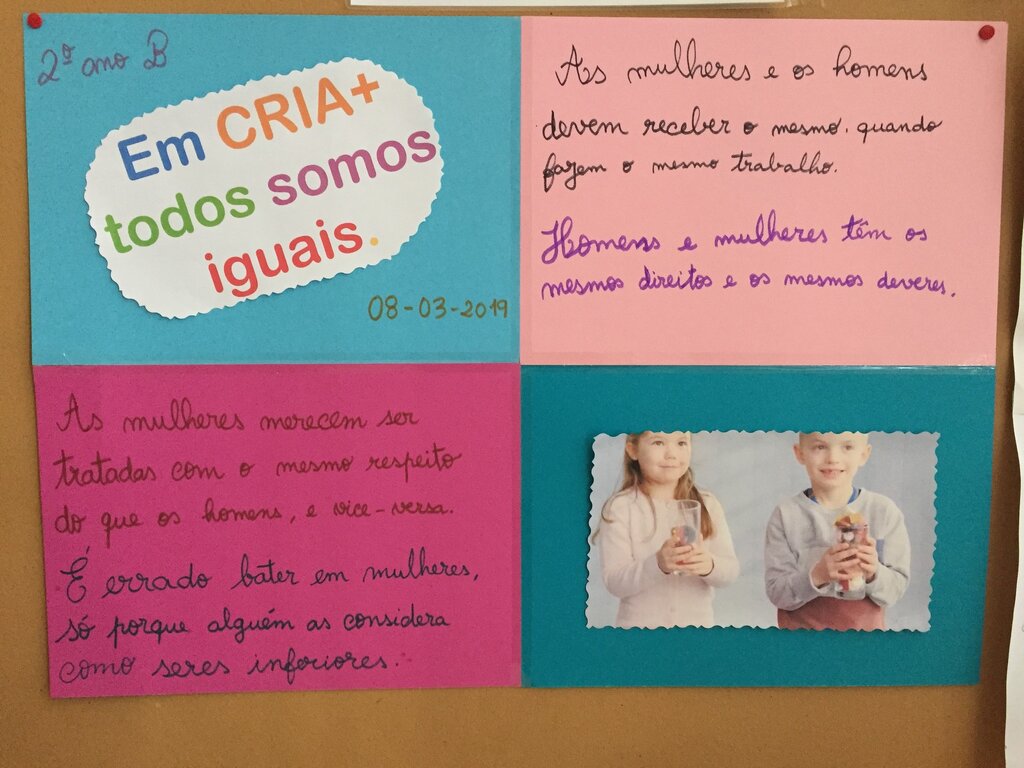 2º ano B
Em CRIA+
todos somos
iguais.
08-03-2019
As mulheres e os homens
devem receber o mesmo. quando
fazem o mesmo trabalho.
Homens e mulheres têm os
mesmos direitos e os mesmos deveres.
As mulheres merecem ser
tratadas com o mesmo respeito
do que os homens, e vice-versa.
É errado bater em mulheres,
só porque alguém as considera
como seres inferiores.